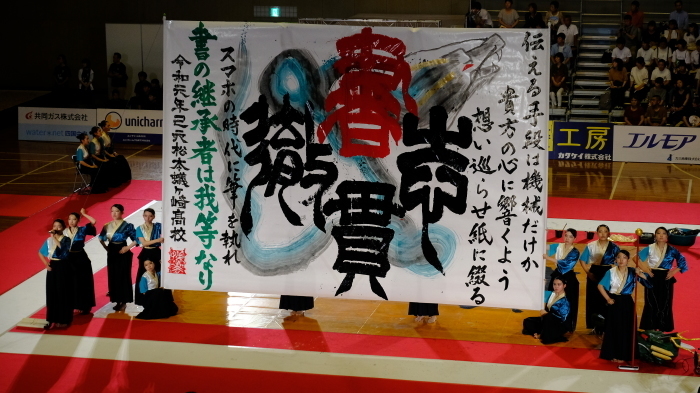 伝える手段は機械だけか
貴方の心に響くよう
想い巡らせ紙に綴る
書
徹
貫
スマホの時代に筆を執れ
書の継承者は我等なり
令和元年己亥松本蟻ヶ崎高校
共同ガス株式会社
unicharm
工房
カタケイ株式会社
エルモア